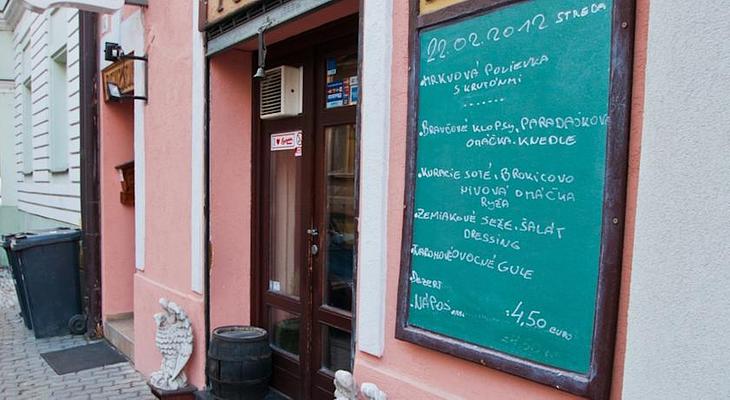 22.02.2012 STREDA
MRKVOVÁ POLIEVKA
S KRUTÓNMI
.......
BRAVČOVÉ KLOPSY, PARADAJKOVÁ
OMÁČKA. KNEDLE
KURACIE SOTÉ, BROKICOVO
NIVOVÁ OMÁČKA
RYŽA
ZEMIAKOVÉ SEZE. ŠALÁT
DRESSING
OVOCNÉ GULE
DEZERT
NÁPOJ ... :4,50 EURO